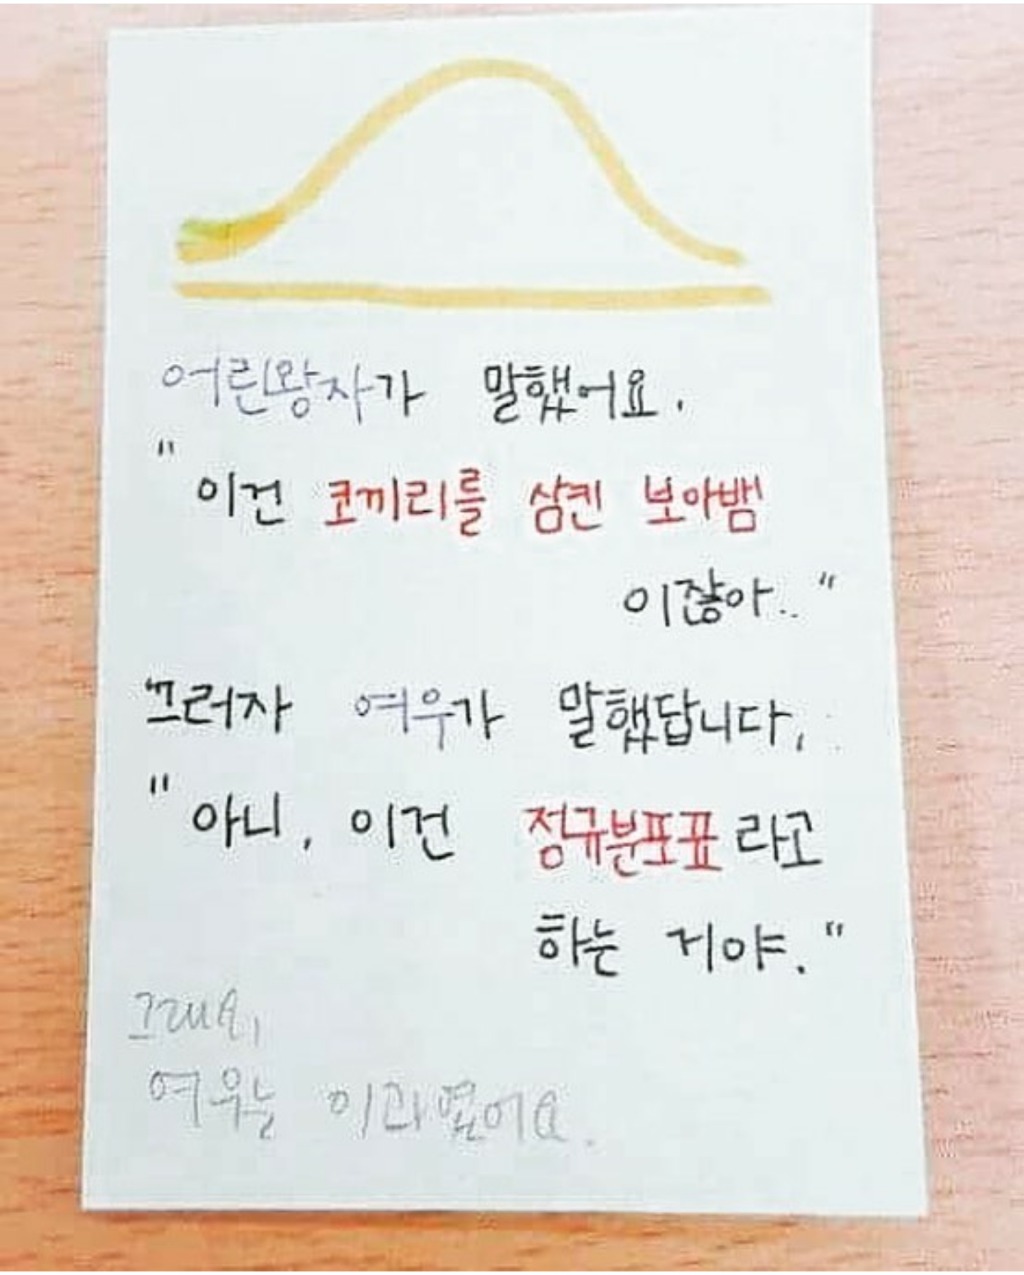 어린왕자가 말했어요.
" 이건 코끼리를 삼킨 보아뱀
이잖아.. "
그러자 여우가 말했답니다,
" 아니, 이건 정규분포표라고
하는 거야. "
그래요,
여우는 이과였어요.